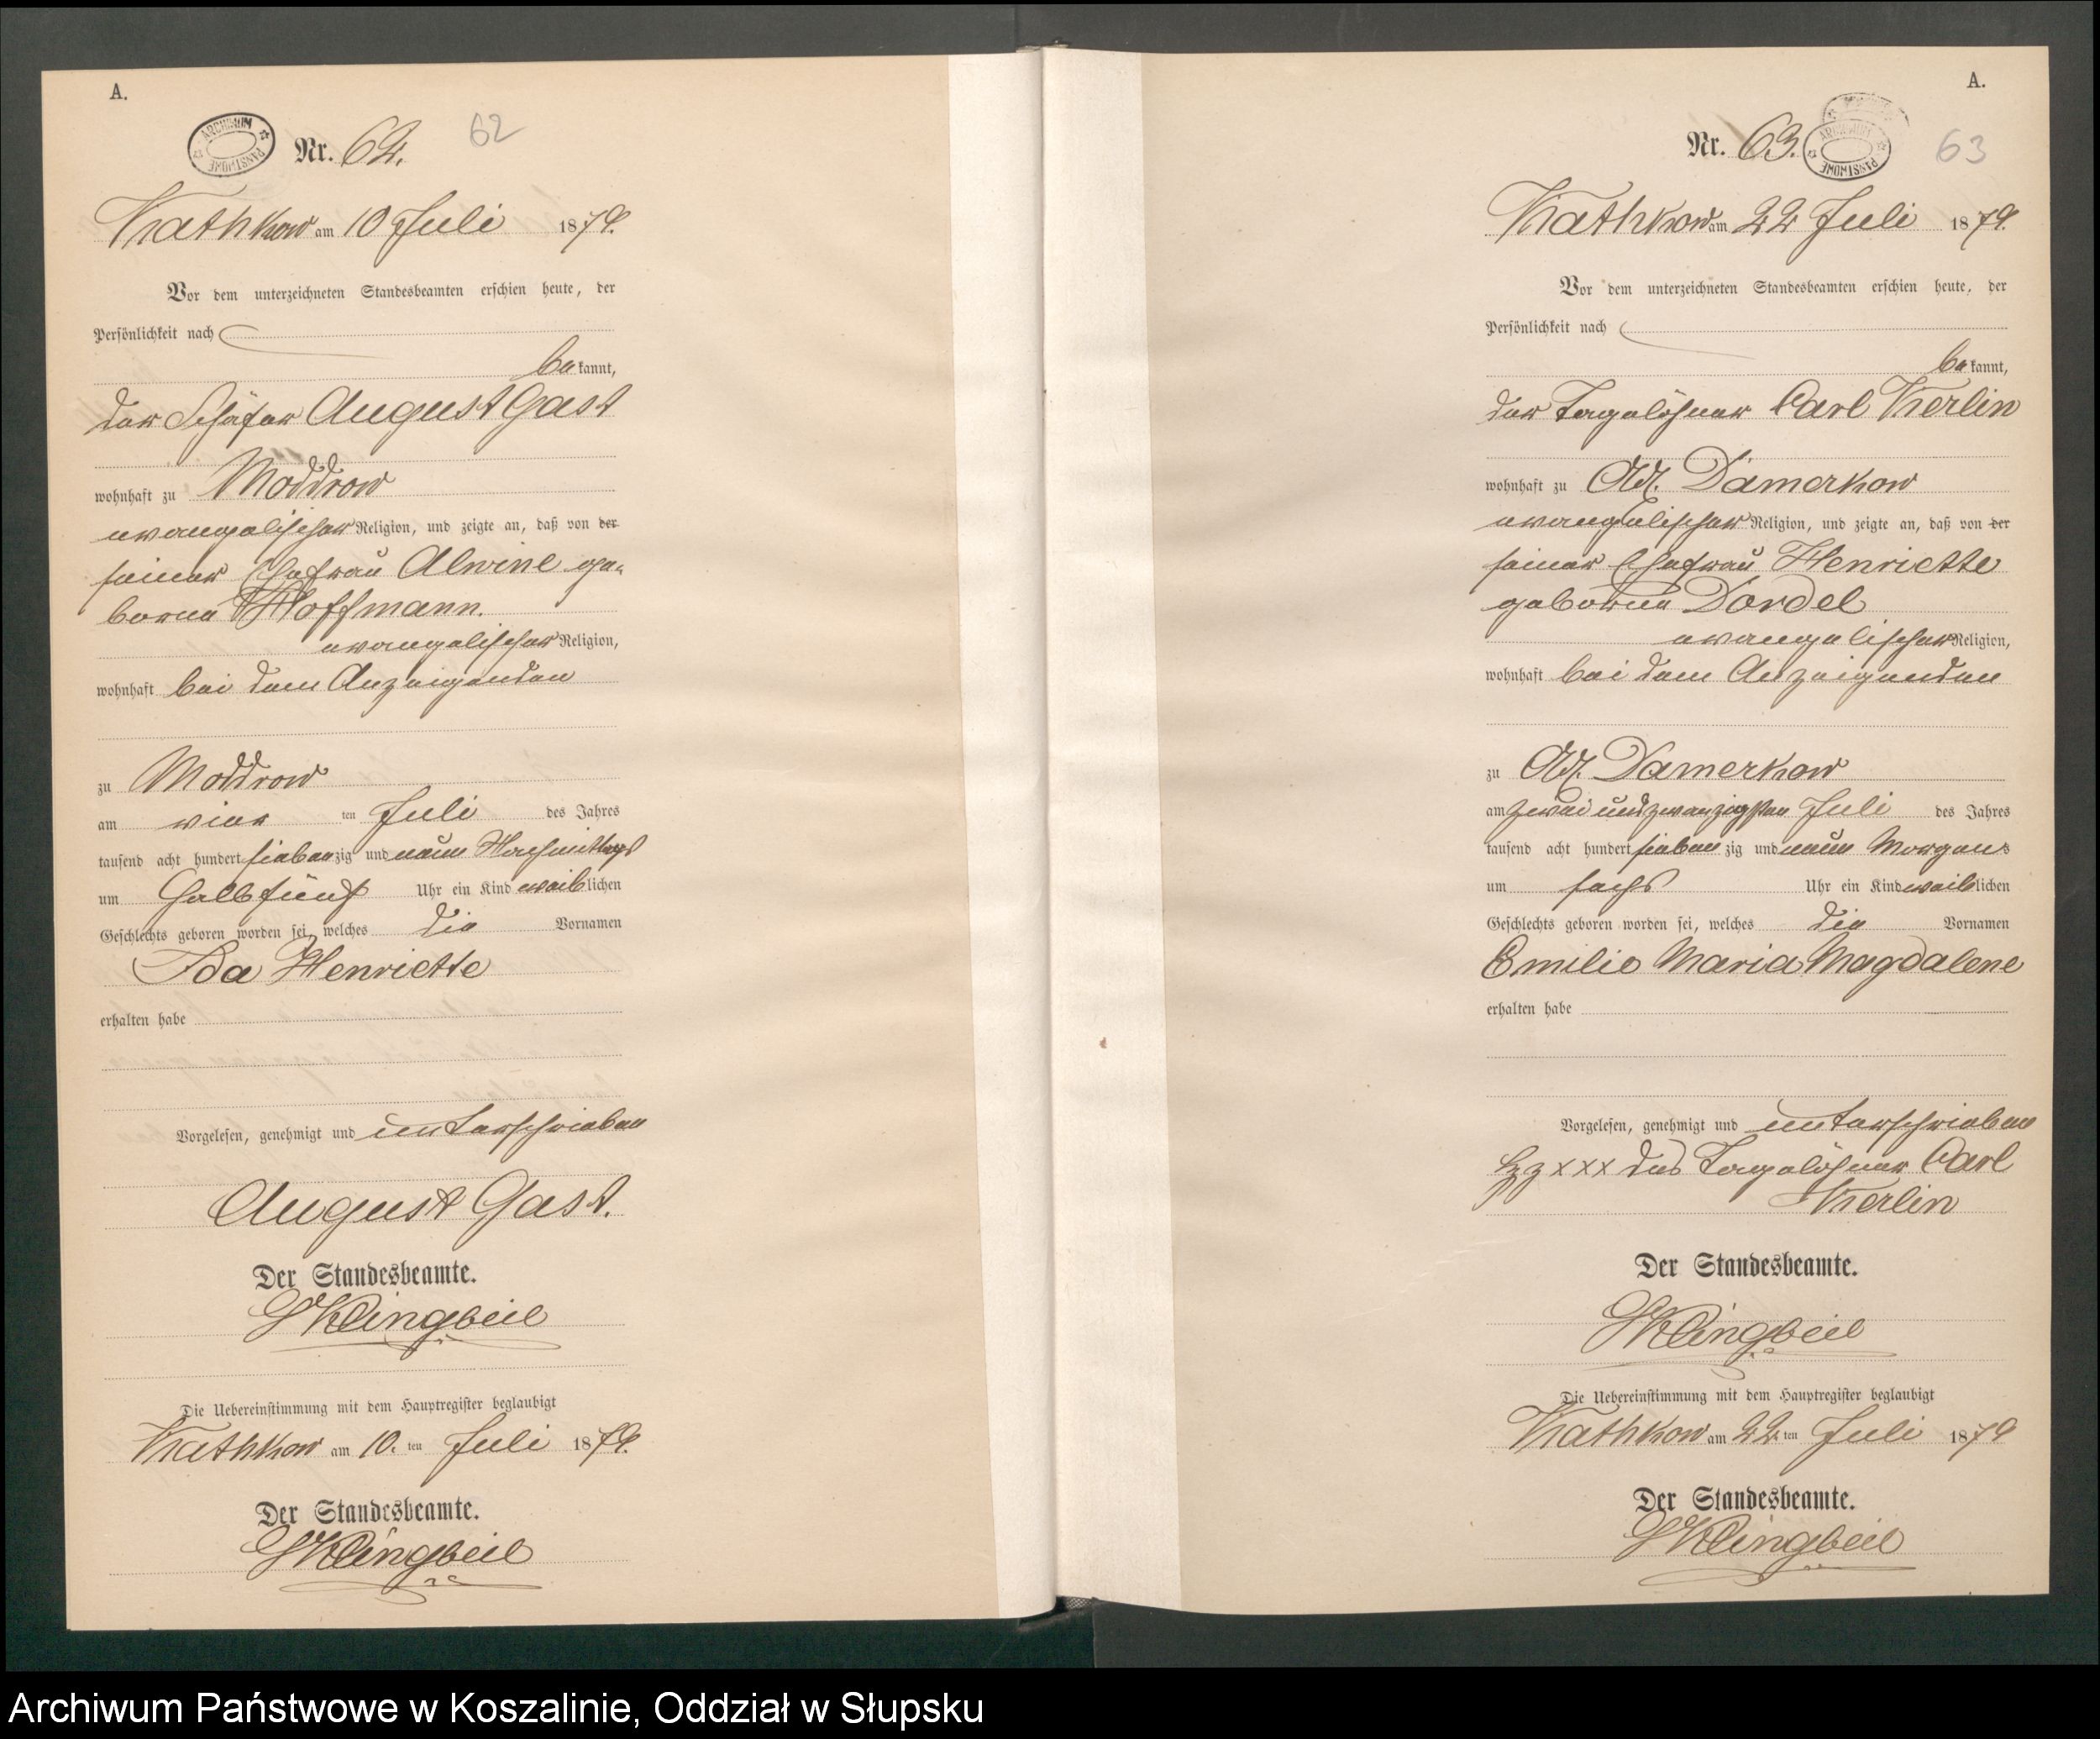 A.
ARCHIWUM PAŃSTWOWE
Nr. 62.
62
Kathkow am 10 Juli 1879.
Vor dem unterzeichneten Standesbeamten erschien heute, der
Persönlichkeit nach
bekannt,
der Schäfer August Gast
wohnhaft zu Moddrow
evangelischer Religion, und zeigte an, daß von der
seiner Ehefrau Alwine ge-
borne Hoffmann.
evangelischer Religion,
wohnhaft bei dem Anzeigenden
zu Moddrow
am vier ten Juli des Jahres
tausend acht hundert siebenzig und neun Nachmittags
um halb fünf Uhr ein Kind weiblichen
Geschlechts geboren worden sei, welches die Vornamen
Ida Henriette
erhalten habe
Vorgelesen, genehmigt und unterschrieben
August Gast.
Der Standesbeamte.
Klingbeil
Die Uebereinstimmung mit dem Hauptregister beglaubigt
Kathkow am 10. ten Juli 1879.
Der Standesbeamte.
Klingbeil
A.
Nr. 63.
ARCHIWUM PAŃSTWOWE
63
Kathkow am 22 Juli 1879.
Vor dem unterzeichneten Standesbeamten erschien heute, der
Persönlichkeit nach
bekannt,
der Tagelöhner Carl Kerlin
wohnhaft zu Adl. Damerkow
evangelischer Religion, und zeigte an, daß von der
seiner Ehefrau Henriette
geborne Dordel
evangelischer Religion,
wohnhaft bei dem Anzeigenden
zu Adl. Damerkow
am zwei und zwanzigsten Juli des Jahres
tausend acht hundert siebenzig und neun Morgens
um sechs Uhr ein Kind weiblichen
Geschlechts geboren worden sei, welches die Vornamen
Emilie Maria Magdalene
erhalten habe
Vorgelesen, genehmigt und unterschrieben
Hzz xxx des Tagelöhner Carl
Kerlin
Der Standesbeamte.
Klingbeil
Die Uebereinstimmung mit dem Hauptregister beglaubigt
Kathkow am 22. ten Juli 1879
Der Standesbeamte.
Klingbeil
Archiwum Państwowe w Koszalinie, Oddział w Słupsku